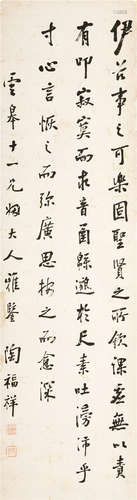 伊茲事之可樂固聖賢之所欽課虛無以責
有叩寂寞而求音函緜邈於尺素吐滂沛乎
寸心言恢之而彌廣思按之而愈深
雲皋十一兄姻大人雅鑒 陶福祥